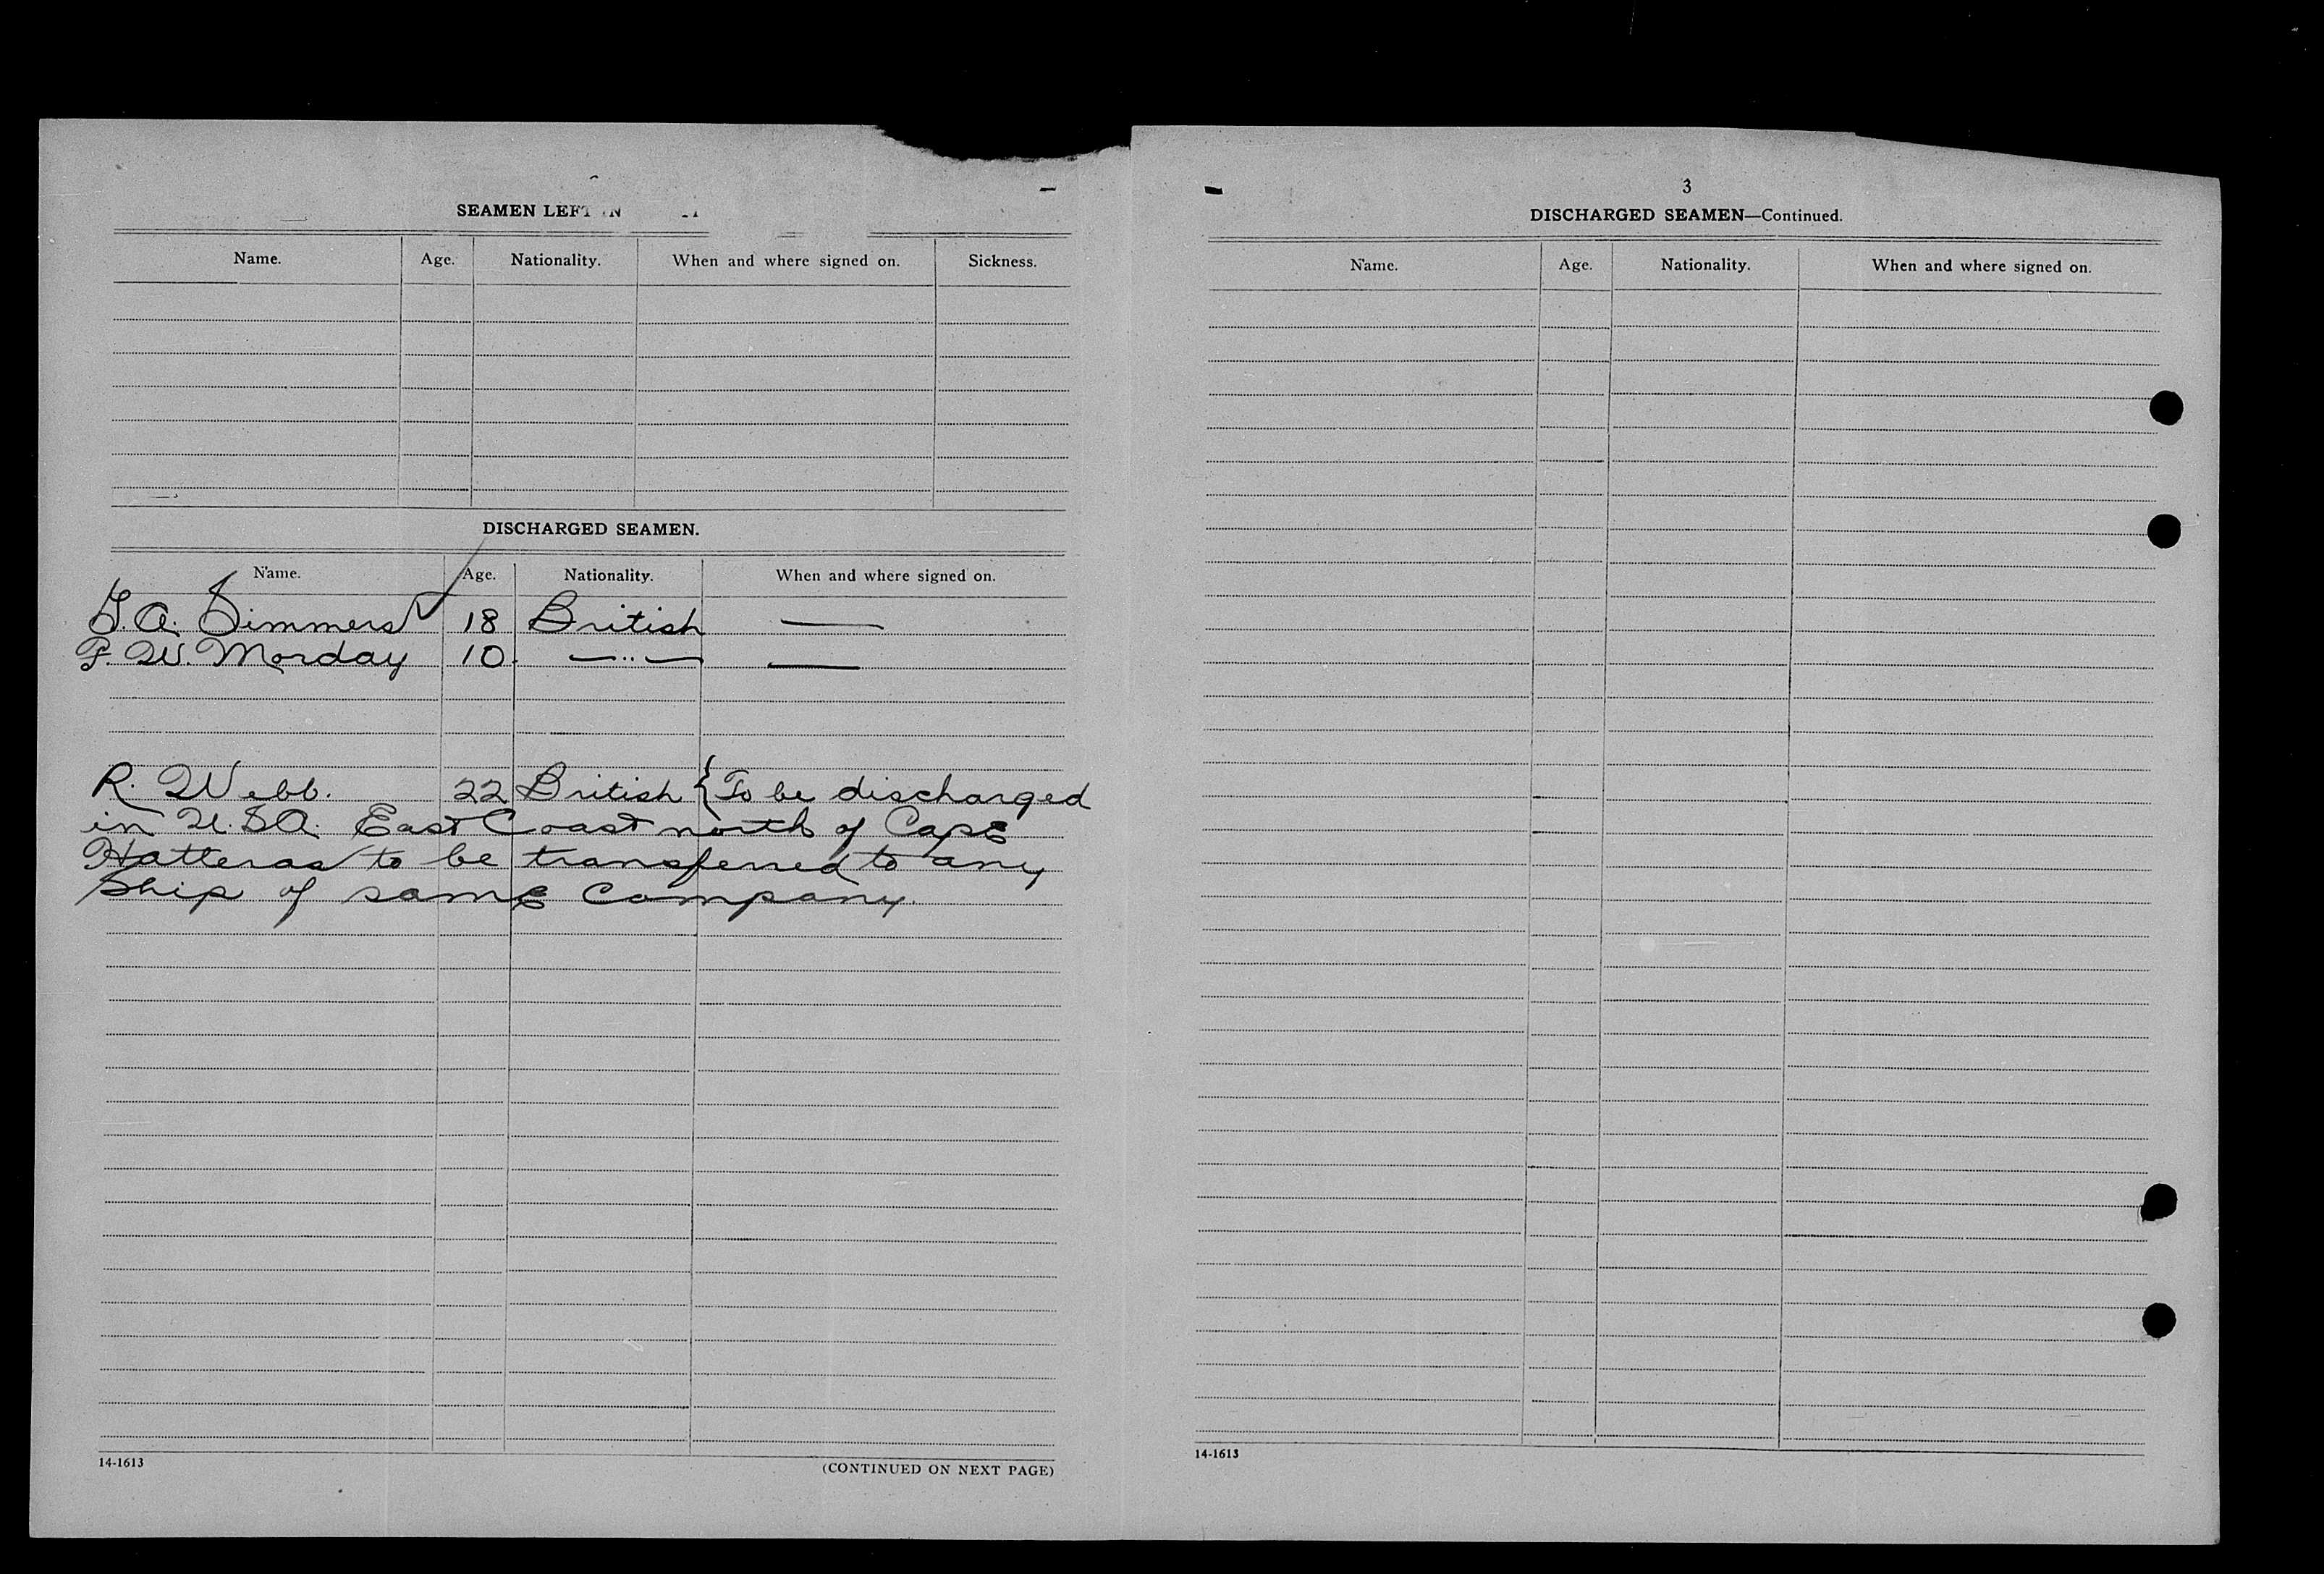 SEAMEN LEFT IN
Name. Age. Nationality. When and where signed on. Sickness.
DISCHARGED SEAMEN.
Name. Age. Nationality. When and where signed on.
G.A. Simmers 18 British —
F. W. Morday 10. —〃— —
R. Webb. 22 British { To be discharged
in U.S.A. East Coast north of Cape
Hatteras to be transferred to any
Ship of same Company.
14-1613
(CONTINUED ON NEXT PAGE)
3
DISCHARGED SEAMEN—Continued.
Name. Age. Nationality. When and where signed on.
14-1613